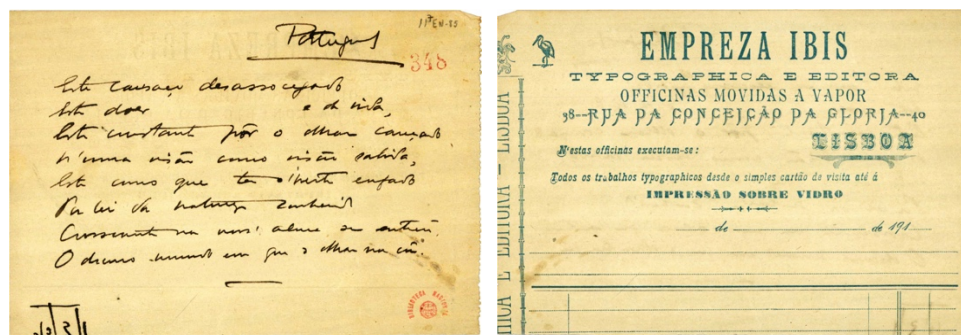 11⁷EN-35
Portugal
348
Este cansaço desassocegado
Este doer e de vida,
Este constante pôr o olhar cançado
N'uma visão como visão
Este como que ter enfado
Por lei da natureza
Consciente na noss' alma se
O diverso mundo em que o olhar
EMPREZA IBIS
TYPOGRAPHICA E EDITORA
OFFICINAS MOVIDAS A VAPOR
38--RUA DA CONCEIÇÃO DA GLORIA--40
LISBOA
N'estas officinas executam-se:
Todos os trabalhos typographicos desde o simples cartão de visita até á
IMPRESSÃO SOBRE VIDRO
de de 191
E EDITORA – LISBOA